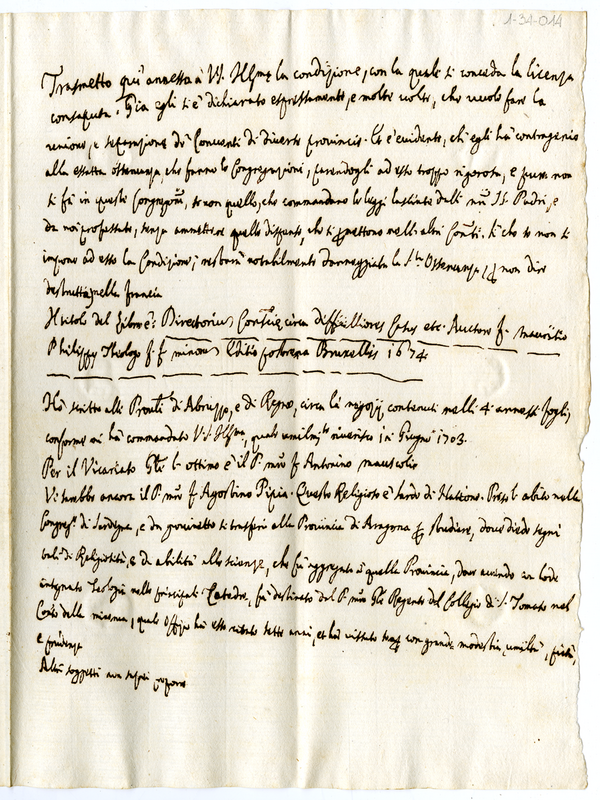 1-34-014
Trasmetto quì annessa à V. S. Illma la condizione, con la quale si conceda la licenza
consaputa. Già egli si è dichiarato espressamente, e molte volte, che vuole fare la
unione, e separazione di Conventi di diverse provincie. Et è evidente, ch'egli hà contragenio
alla essatta osservanza, che fanno le Congregazioni, parendogli ad esso troppo rigorosa, e pure non
si fà in queste Congregni, se non quello, che commandano le leggi lasciate dalli nri SS. Padri, e
da noi professate, senza ammettere quelle dispense, che si permettono nelli altri Conti. Si che se non si
impone ad esso la Condizione, resterà notabilmente danneggiata la Sta Osservanza, per non dire
destrutta nella Francia
Il titolo del Libro è: Directorium Conscie circa difficiliores Casus etc. Auctore f. Mauritio
Philippi Theologo f. f. minorum Editio postrema Bruxellis 1674.
Hò scritto alli Pronli di Abruzzo, e di Regno, circa li negozij contenuti nelli 4 annessi fogli,
conforme mi hà commandato V. S. Illma, quale umilmte riverisco in Giugno 1703.
Per il Vicariato Gnle ottimo è il P. mro f. Antonino
Vi sarebbe ancora il P. mro f. Agostino Pipia. Questo Religioso è sardo di Natione. Prese l'abito nella
Congregne di Sardegna, e da giovinetto si trasferì alla Provincia di Aragona per studiare, dove diede segni
tali di Religiosità, e di abilità alle scienze, che fù aggregato à quella Provincia, dove avendo con lode
insegnato Teologia nelle principali Catedre, fù destinato dal P. mro Gnle Regente del Collegio di S. Tomaso nel
Conto della minerva, quale Offizio hà esercitato sette anni, et hà vissuto sempre con grande modestia, umiltà, pietà,
e prudenza
Altri soggetti non saprei proporre